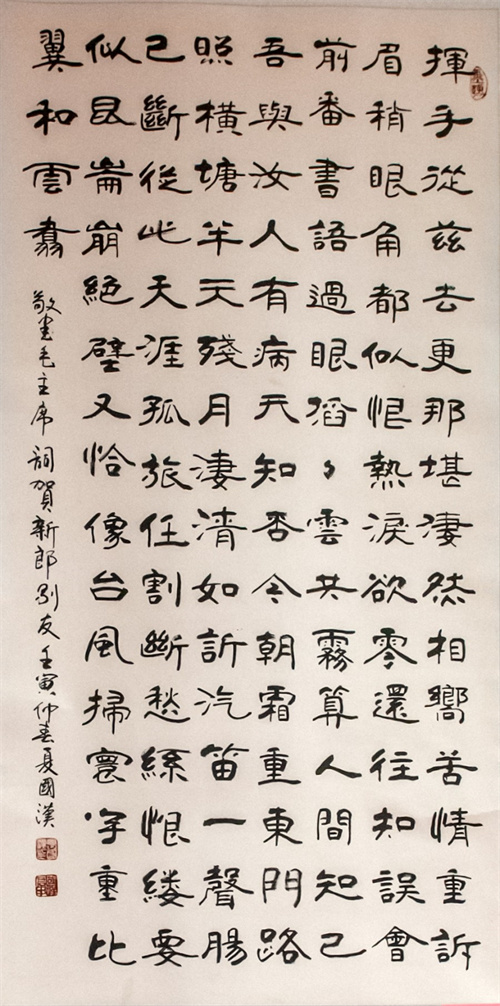 揮手從茲去更那堪淒然相嚮苦情重訴
眉稍眼角都似恨熱淚欲零還往知誤會
前番書語過眼滔〻雲共霧算人間知己
吾與汝人有病天知否今朝霜重東門路
照橫塘半天殘月淒清如許汽笛一聲腸
已斷從此天涯孤旅任割斷愁絲恨縷要
似昆崙崩絕壁又恰像台風掃寰宇重比
翼和雲翥
敬書毛主席詞賀新郎別友壬寅仲春夏國漢